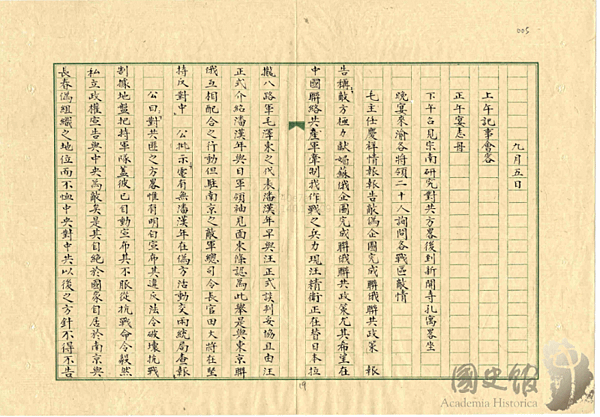 005
九月五日
上午記事會客
正午宴志舟
下午召見宗南研究對共方略後到新開寺孔寓略坐
晚宴來渝各將領二十人詢問各戰區敵情
毛主任慶祥情報報告敵偽企圖完成聯俄聯共政策 報
告稱敵方極力獻媚蘇俄企圖完成聯俄聯共政策尤其希望在
中國聯絡共產軍牽制我作戰之兵力現汪精衛正在替日本拉
攏八路軍毛澤東之代表潘漢年早與汪正式談判妥協且由汪
正式介紹潘漢年與日軍領袖見面東條認為此舉是與東京聯
俄互相配合之行動但駐南京之敵軍總司令長官畑大將在堅
持反對中 公批示電有無潘漢年在偽方活動交兩統局查報
公曰對共匪之方略惟有明白宣布其違反法令破壞抗戰
割據地盤把持軍隊蓋彼已自動宣布其不服從抗戰命令毅然
私立政權宣告與中央為敵矣是其自絕於國家自居於南京與
長春偽組織之地位而不恤中央對中共以後之方針不得不告
19
國史館
Academia Historica